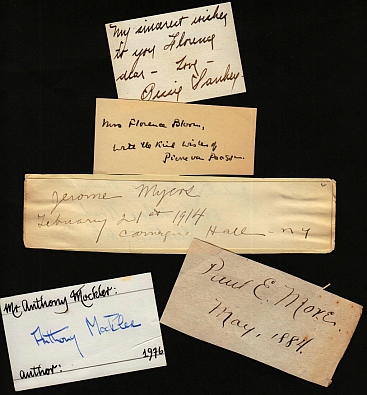 My sincerest wishes
to you Florence
dear - Love -
Mrs Florence Bloom,
with the kind wishes of
Pierre van Paassen.
Jerome Myers
February 21st 1914
Carnegie Hall - NY
Mr Anthony Mockler:
Anthony Mockler
author: 1976
Paul E. More.
May, 1884.